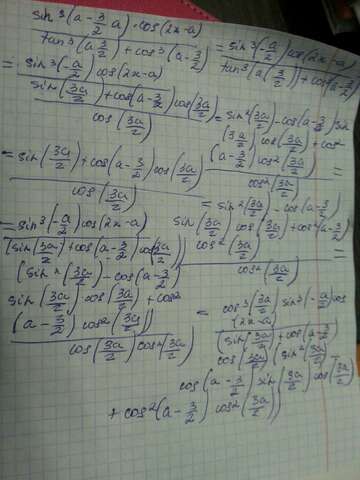 sin³(a - 3/2 a) · cos(2x-a) / tan³(a 3/2) + cos³(a - 3/2) = sin³(-a/2) cos(2x-a) / tan³(a(3/2)) + cos(a - 3/2)
= sin³(-a/2) cos(2x-a) / sin(3a/2) + cos(a - 3/2) cos(3a/2) / cos(3a/2)
= sin²(3a/2) - cos(a - 3/2) sin
(3a/2) cos(3a/2) + cos²
(a - 3/2) cos²(3a/2) / cos²(3a/2) =
= sin(3a/2) + cos(a - 3/2) cos(3a/2) / cos(3a/2)
= sin²(3a/2) - cos(a - 3/2)
sin(3a/2) cos(3a/2) + cos²(a - 3/2)
cos²(3a/2) / cos²(3a/2) =
= sin³(-a/2) cos(2x-a)
(sin(3a/2) + cos(a - 3/2) cos(3a/2))
(sin²(3a/2) - cos(a - 3/2)
sin(3a/2) cos(3a/2) + cos²
(a - 3/2) cos²(3a/2)) / cos(3a/2) cos²(3a/2)
= cos³(3a/2) sin³(-a/2) cos
(2x-a)
(sin(3a/2) + cos(a - 3/2)
cos(3a/2)) (sin²(3a/2) -
cos(a - 3/2) sin(3a/2) cos(3a/2)
+ cos²(a - 3/2) cos²(3a/2))